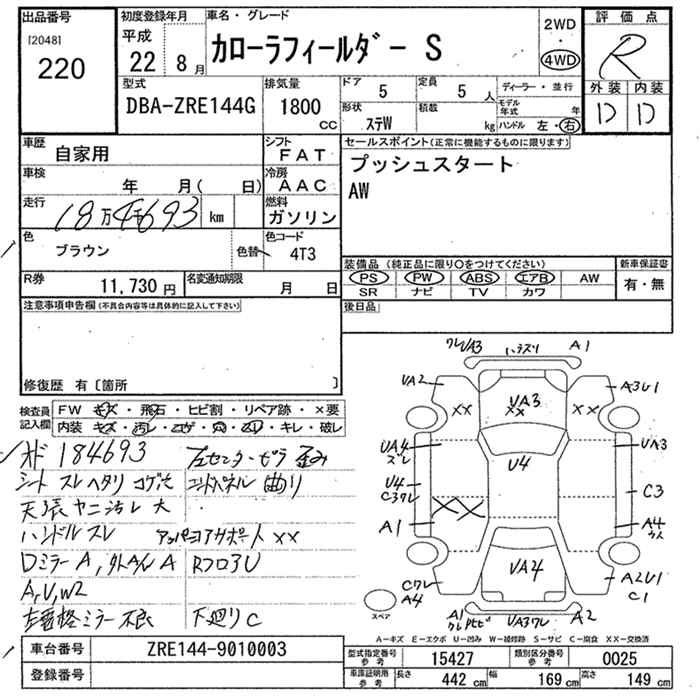 出品番号
[2048]
220
初度登録年月
平成
22年 8月
車名・グレード
カローラフィールダー S
2WD
・
4WD
評価点
R
外装 内装
D D
型式
DBA-ZRE144G
排気量
1800 CC
ドア 5
定員 5 人
形状 ステW
積載 kg
ディーラー・並行
モデル年式 年
ハンドル 左・右
車歴 自家用
シフト FAT
車検 年 月( 日)
冷房 AAC
走行 18万4千693 km
燃料 ガソリン
色 ブラウン
色替
色コード 4T3
R券 11,730円
名変通知期限 月 日
セールスポイント(正常に機能するものに限ります)
プッシュスタート
AW
装備品(純正品に限り○をつけてください)
PS PW ABS エアB AW
SR ナビ TV カワ
新車保証書
有・無
後日品
注意事項申告欄(不具合内容等は具体的に記入して下さい)
修復歴 有〔箇所 〕
検査員記入欄
FW キズ・飛石・ヒビ割・リペア跡・×要
内装 キズ・汚レ・コゲ・穴・スリ・キレ・破レ
184693
左センターピラ 歪み
シート スレ ヘタリ コゲ穴
コンドパネル 曲り
天張 ヤニ 汚レ 大
ハンドル スレ
アッパーコアサポート XX
Dミラー A,
RフロアU
A,U,W2
左電格ミラー 不良
下廻り C
ワレUA3
ハゲスリ
A1
UA2
XX
UA3
XX
A3U1
UA4
スレ
UA3
U4
U4
C3ワレ
C3
XX
A1
A4
Cワレ
A4
UA4
A2U1
C1
スペア
A1
UA3ワレ
A2
A-キズ E-エクボ U-凹み W-補修跡 S-サビ C-腐食 XX-交換済
車台番号 ZRE144-9010003
登録番号
型式指定番号 参考 15427
類別区分番号 参考 0025
車庫証明用 参考 長さ 442 cm 幅 169 cm 高さ 149 cm